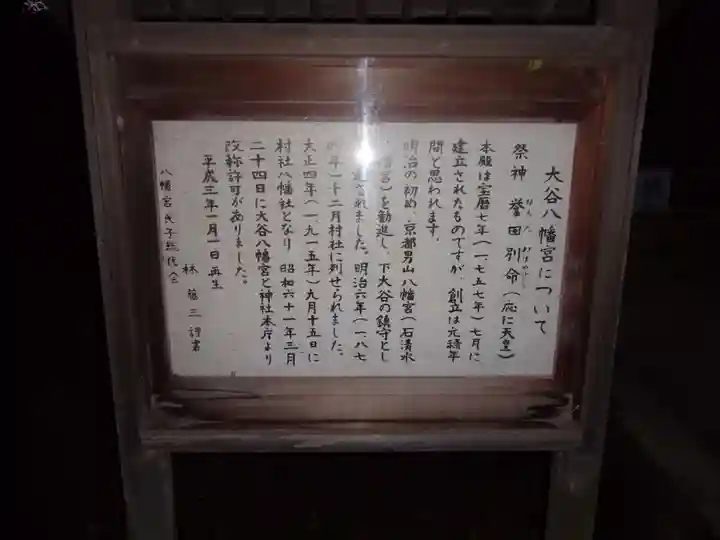 大谷八幡宮について
祭神 誉田別命(応仁天皇)
ほんだ わけのみこと
本殿は宝暦七年(一、七五七年)七月に
建立されたものですが、創立は元禄年
間と思われます。
明治の初め、京都男山八幡宮(石清水
幡宮)を勧進し、下大谷の鎮守とし
されました。明治六年(一八七
年)十二月村社に列せられました。
大正四年(一、九一五年)九月十五日に
村社八幡社となり 昭和六十一年三月
二十四日に大谷八幡宮と神社本庁より
改称許可がありました。
平成三年一月一日再生
八幡宮氏子総代会
林 藤三 謹書